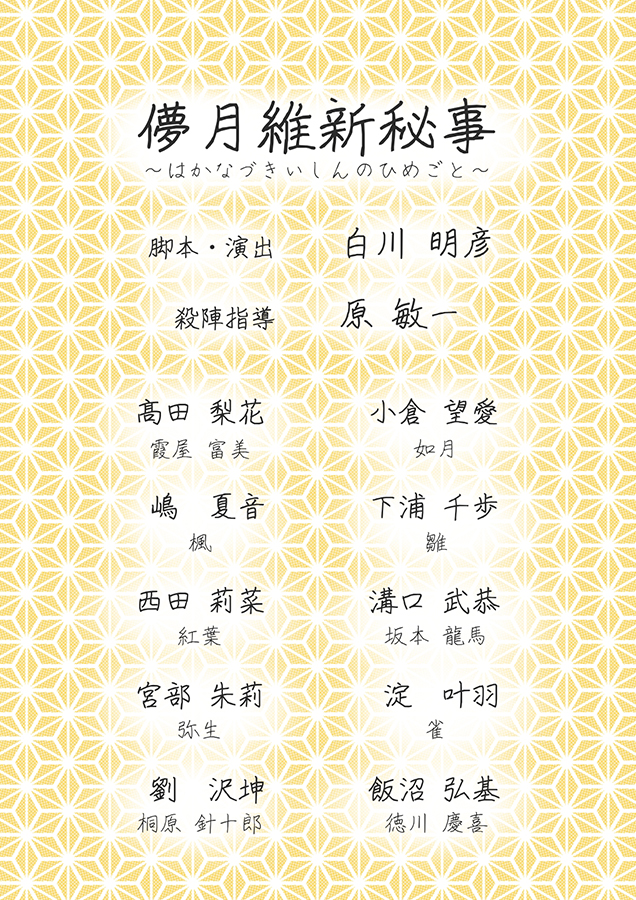 儚月維新秘事
～はかなづきいしんのひめごと～
脚本・演出 白川 明彦
殺陣指導 原 敏一
髙田 梨花 小倉 望愛
霞屋 富美 如月
嶋 夏音 下浦 千歩
楓 雛
西田 莉菜 溝口 武恭
紅葉 坂本 龍馬
宮部 朱莉 淀 叶羽
弥生 雀
劉 沢坤 飯沼 弘基
桐原 針十郎 徳川 慶喜